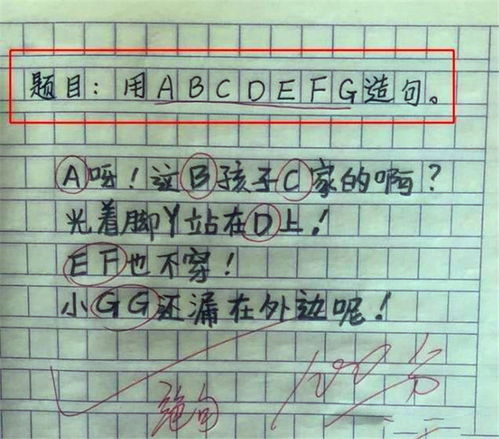 题目：用ABCDEFG造句。
A呀！这B孩子C家的啊？
光着脚丫站在D上！
EF也不穿！
小GG还漏在外边呢！
绝句 100分